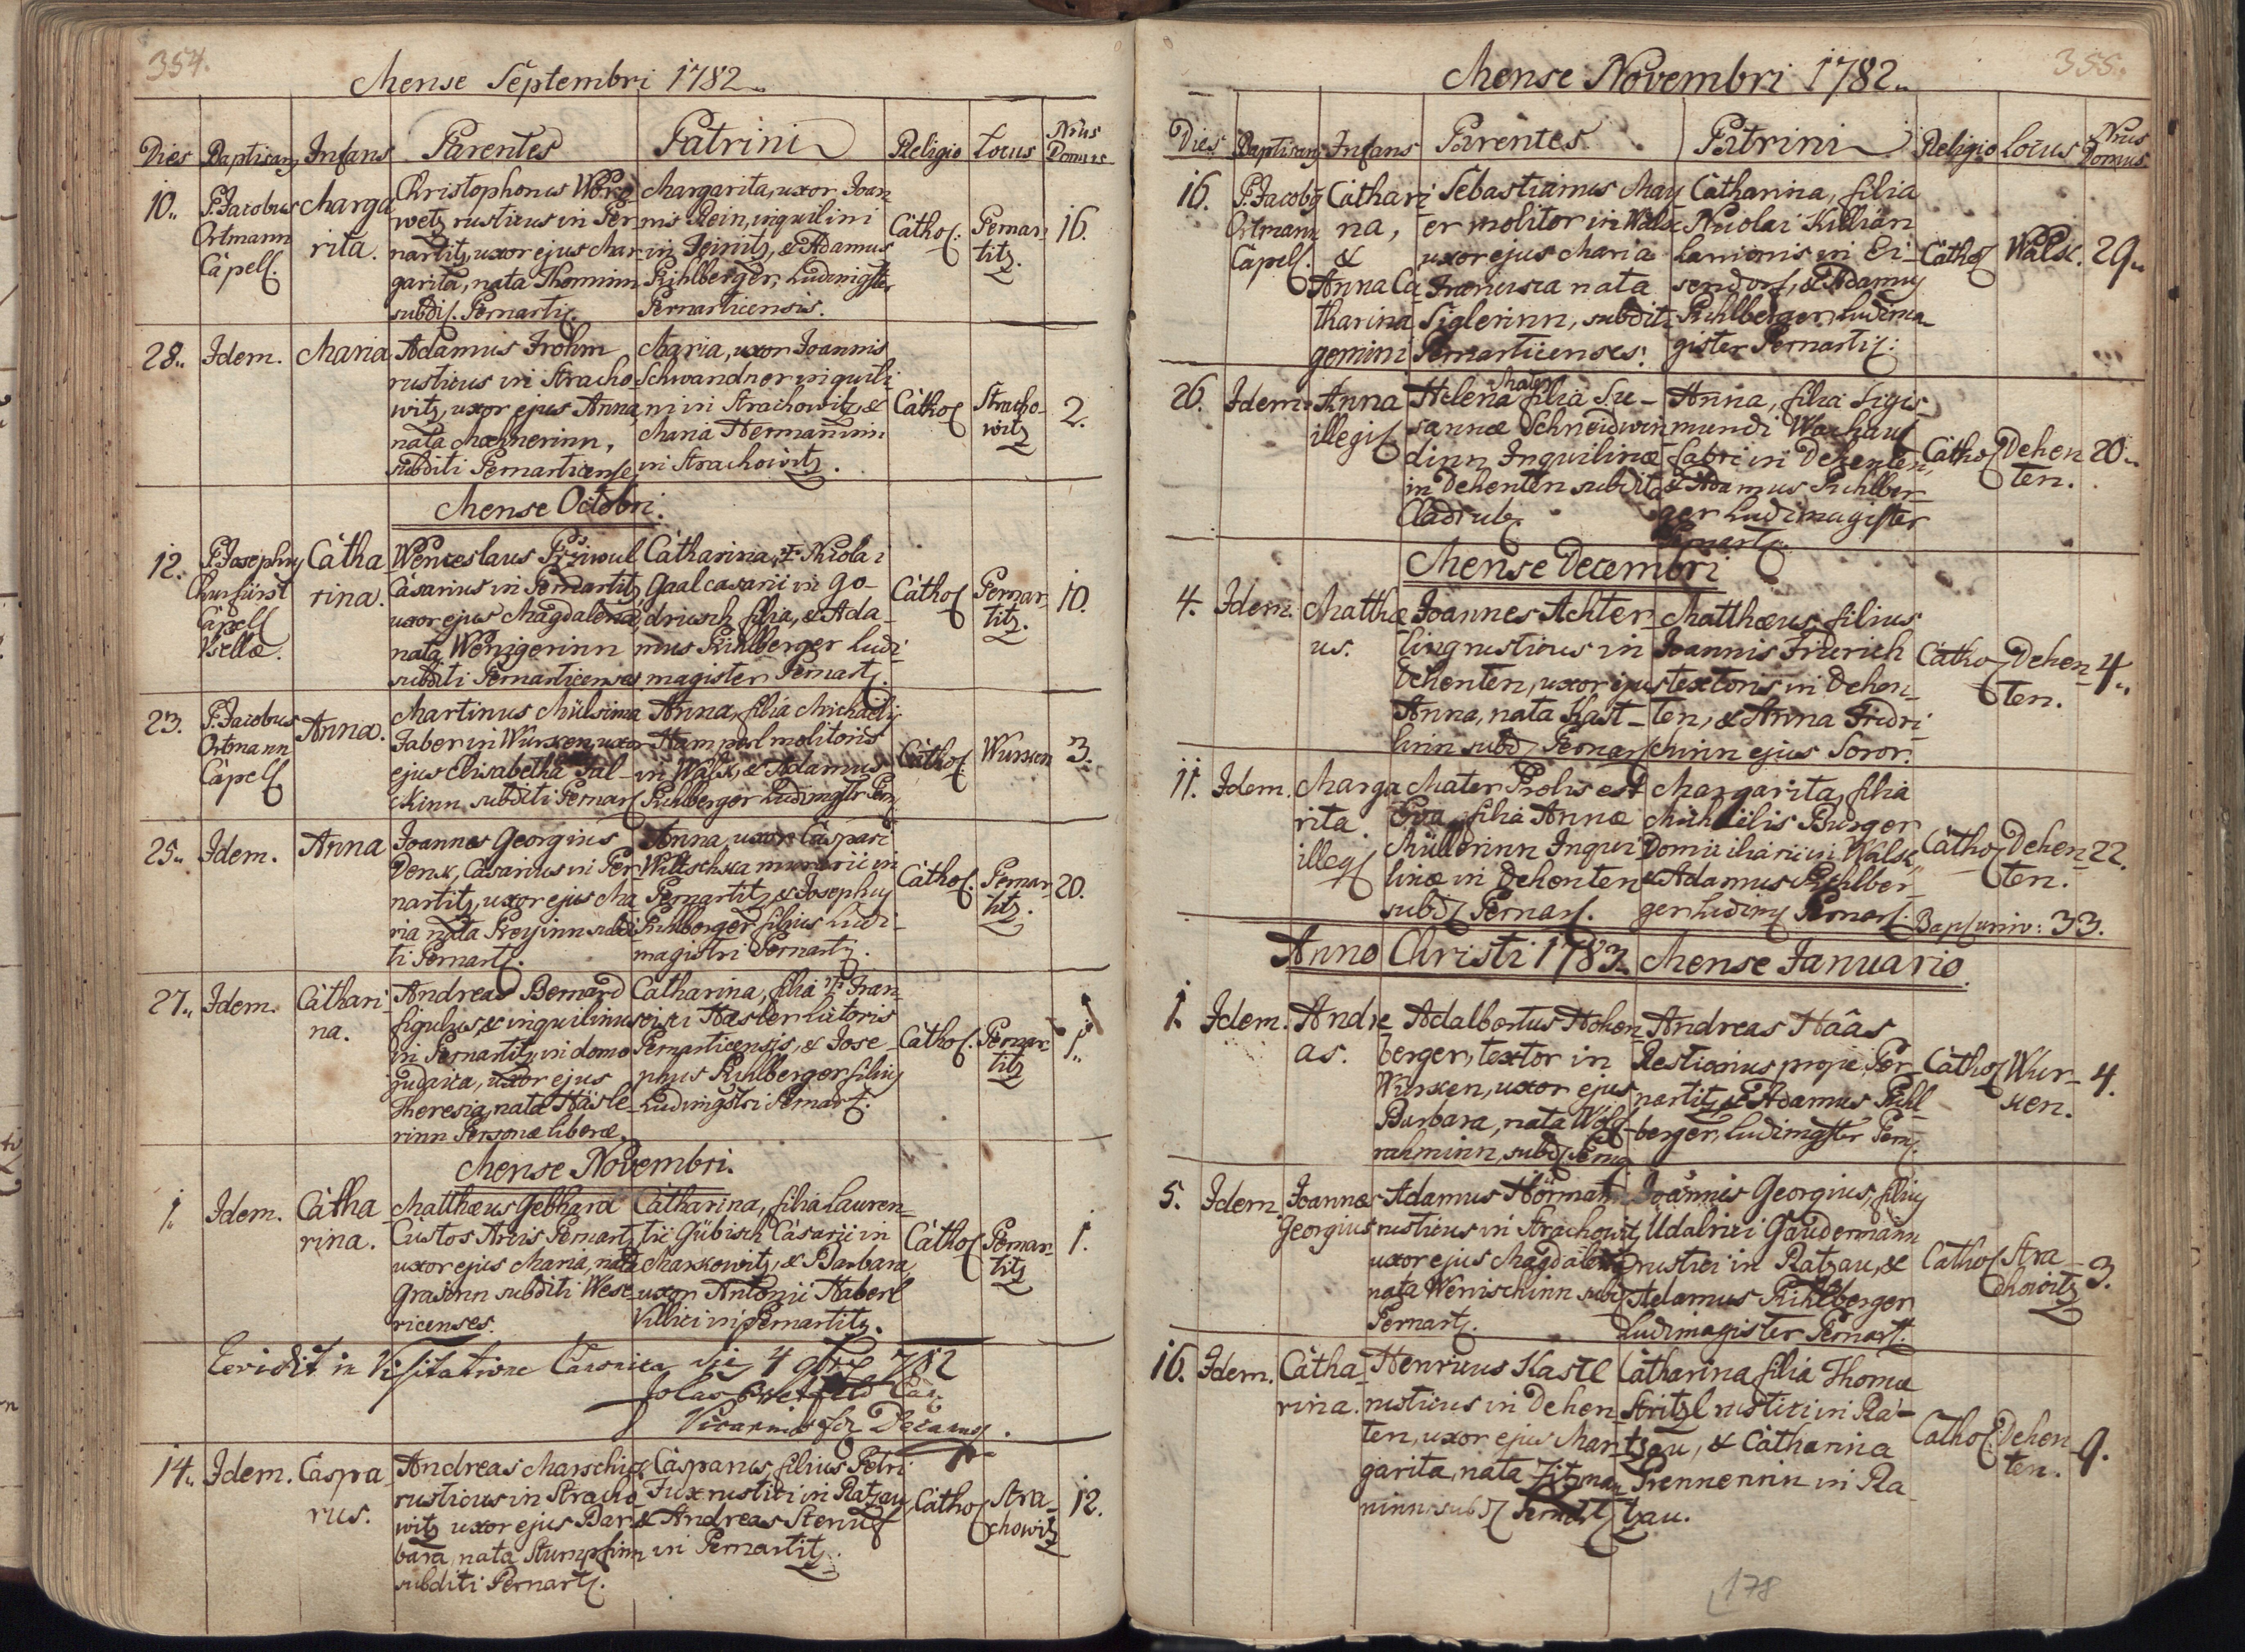 354.
Mense Septembri 1782
Dies Baptisans Infans Parentes Patrini Religio Locus Nrus Domus
10. P. Jacobus Ortmann Capell.
Marga
rita.
Christophorus
wetz rusticus in Per
nartitz, uxor ejus Mar
garita, nata Thominn
subdi. Pernarti.
Margarita, uxor Joan
nis Rein, inquilini
in & Adamus
Kihlberger, Ludimgster
Pernarticensis.
Cathol. Pernar
titz.
16.
28. Idem. Maria
Adamus Frohm
rusticus in Stracho
witz, uxor ejus Anna,
nata
subditi Pernarticenses
Maria, uxor Joannis
Schwandner inquili
ni in Strachowitz, &
Maria Hermaninn
in Strachowitz.
Cathol Stracho
witz
2.
Mense Octobri.
12. P. Josephus
Churfürst
Capell
Catha
rina.
Wenceslaus
Casarius in Pernartitz
uxor ejus Magdalena,
nata Wenzgerinn
subditi Pernarticenses
Catharina, Nicolai
Gaal casarii in Go-
driusch filia, & Ada-
mus Kihlberger Ludi
magister Pernart.
Cathol Pernar
titz.
10.
23. P. Jacobus
Ortmann
Capell
Anna.
Martinus
Faber in Wursken, uxor
ejus Elisabetha
subditi Pernar
Anna, filia Michaelis
Hamperl molitoris
in Walsk, & Adamus
Kihlberger Ludimgstr Pern
Cathol Wursken 3.
25. Idem. Anna
Joannes Georgius
Denk, Casarius in Per
nartitz, uxor ejus Ma
ria nata subdi
ti Pernart.
Anna uxor Caspari
Wiltschka murarii in
Pernartitz & Josephus
Kihlberger filius Ludi-
magistri Pernart.
Cathol. Pernar
titz.
20.
27. Idem. Cathari
na.
Andreas Bernard
figulus, & inquilinus
in Pernartitz in domo
judaica, uxor ejus
Theresia, nata Häsle
rinn Personae liberae.
Catharina, filia Fran
cisci
Pernarticensis, & Jose-
phus Kihlberger filius
Ludimgstri Pernart.
Cathol. Pernar
titz
1.
Mense Novembri.
1. Idem. Catha
rina.
Matthaeus Gebhard
Custos Pernart
uxor ejus Maria, nata
subditi Wese
ricenses.
Catharina, filia Lauren
tii Gübisch Casarii in
Marskowitz, & Barbara
uxor Antonii Haberl
Villici in Pernartitz.
Cathol Pernar
titz
1.
in Visitatione Canonica die 4 9bris 782
Vicarius
14. Idem. Caspa
rus.
Andreas
rusticus in Stracho
witz uxor ejus Bar
bara, nata Stumpfinn
subditi Pernart.
Casparus, filius Petri
Fux rustici in Ratzau
& Andreas
in Pernartitz.
Cathol Stra-
chowitz
12.
355.
Mense Novembri 1782
Dies Baptisans Infans Parentes Patrini Religio Locus Nrus Domus
16. P. Jacobus
Ortmann
Capell.
Cathari
na,
&
Anna Ca
tharina
gemini
Sebastianus May
er molitor in Walsk
uxor ejus Maria
Francisca nata
Siglerinn, subditi
Pernarticenses.
Catharina, filia
Nicolai Killian
Lanionis in Ei-
sendorf, & Adamus
Kihlberger, Ludima
gister Pernarti.
Cathol Walsk. 29.
26. Idem. Anna
illegi
Mater
Helena filia Su-
sannae Schneidwin
dinn Inquilinae
in Dehenten subdita
Cladrub.
Anna, filia Sigis-
mundi
fabri in Dehenten,
& Adamus Kihlber
ger Ludimagister
Pernart.
Cathol Dehen
ten.
20.
Mense Decembri
4. Idem. Matthae
us.
Joannes Achter
ling rusticus in
Dehenten, uxor ejus
Anna, nata Kast-
lerin subd. Pernar
Matthaeus, filius
Joannis Friderich
textoris in Dehen-
ten, & Anna Fridri
chinn ejus Soror.
Cathol Dehen
ten.
4.
11. Idem. Marga
rita
illeg
Mater Prolis est
Eva, filia Annae
Müllerinn Inqui
linae in Dehenten
subd. Pernar.
Margarita, filia
Michaelis Burger
Domiciliarii in Walsk,
& Adamus Kihlber
ger Ludimg Pernar.
Cathol Dehen
ten.
22.
Bap. univ: 33.
Anno Christi 1783. Mense Januario.
1. Idem. Andre
as.
Adalbertus Hohen
berger, textor in
Wursken, uxor ejus
Barbara, nata Wolf
rahminn, subd. Pernar
Andreas Haas
prope Per
nartitz, & Adamus Kihl
berger, Ludimgster Pern.
Cathol Wur-
sken.
4.
5. Idem Joannes
Georgius
Adamus Hörmann
rusticus in Strachowitz
uxor ejus Magdalena
nata Wenischinn subd
Pernart.
Joannis Georgius, filius
Udalrici Gaudermann
rustici in Ratzau, &
Adamus Kihlberger
Ludimagister Pernart.
Cathol Stra-
chowitz
3.
16. Idem. Catha
rina.
Henricus Kastl
rusticus in Dehen
ten, uxor ejus Mar
garita, nata Zitzman
ninn subd Pernart
Catharina filia Thomae
Stritzl rustici in Ra-
tzau, & Catharina
Prennerinn in Ra
tzau.
Cathol. Dehen
ten.
9.
178